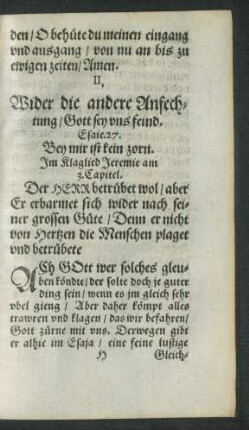 den / O behüte du meinen eingang
vnd ausgang / von nu an bis zu
ewigen zeiten / Amen.
II.
Wider die andere Anfech-
tung / Gott sey vns feind.
Esaie. 27.
Bey mir ist kein zorn.
Im Klaglied Jeremie am
3. Capitel.
Der HERR betrübet wol / aber
Er erbarmet sich wider nach sei-
ner grossen Güte / Denn er nicht
von Hertzen die Menschen plaget
vnd betrübete
ACh GOtt wer solches gleu-
ben köndte / der solte doch je guter
ding sein / wenn es jm gleich sehr
vbel gieng / Aber daher kömpt alles
trawren vnd klagen / das wir befahren /
Gott zürne mit vns. Derwegen gibt
er alhie im Esaja / eine feine lustige
H Gleich-